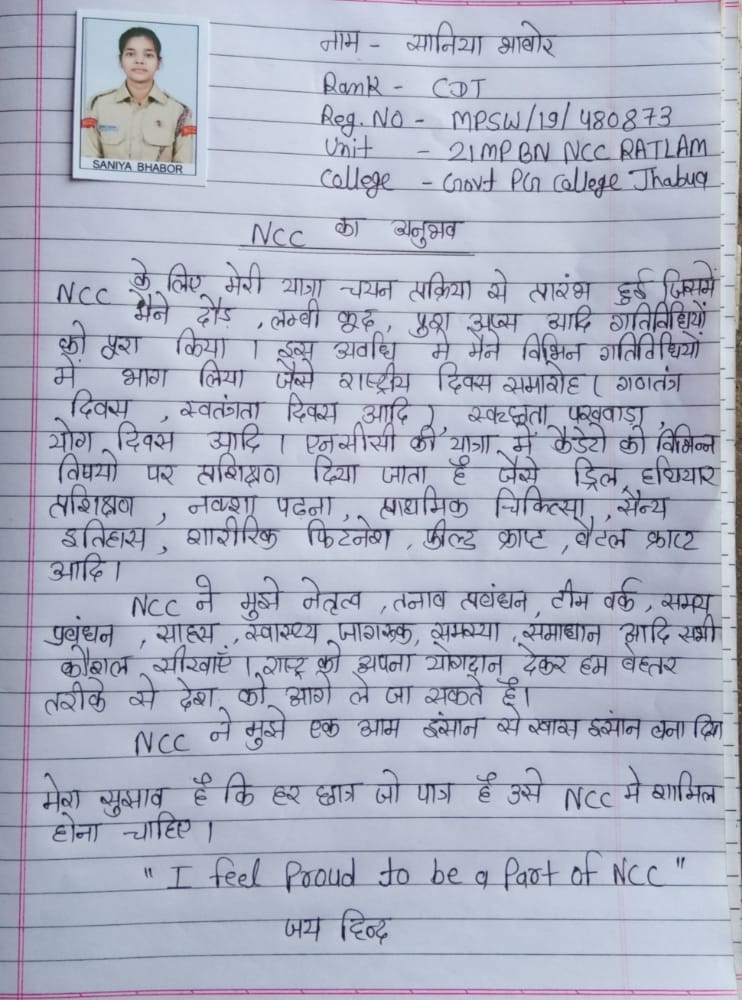 SANIYA BHABOR
नाम - सानिया भाबोर
Rank - CDT
Reg. No - MPSW/19/480873
Unit - 21 MP BN NCC RATLAM
College - Govt PG College Jhabua
NCC का अनुभव
NCC के लिए मेरी यात्रा चयन प्रक्रिया से प्रारंभ हुई जिसमें
मैने दौड़, लम्बी कूद, पुश अप्स आदि गतिविधियों
को पूरा किया। इस अवधि मे मैने विभिन गतिविधियों
में भाग लिया जैसे राष्ट्रीय दिवस समारोह (गणतंत्र
दिवस, स्वतंत्रता दिवस आदि), स्वच्छता पखवाड़ा,
योग दिवस आदि। एनसीसी की यात्रा में कैडेटो को विभिन्न
विषयो पर प्रशिक्षण दिया जाता है जैसे ड्रिल, हथियार
प्रशिक्षण, नक्शा पढना, प्राथमिक चिकित्सा, सैन्य
इतिहास, शारीरिक फिटनेश, फील्ड क्राप्ट, बैटल क्राप्ट
आदि।
NCC ने मुझे नेतृत्व, तनाव प्रबंधन, टीम वर्क, समय
प्रबंधन, साहस, स्वास्थ्य जागरूक, समस्या, समाधान आदि सभी
कौशल सीखाएँ। राष्ट्र को अपना योगदान देकर हम बेहतर
तरीके से देश को आगे ले जा सकते है।
NCC ने मुझे एक आम इंसान से खास इंसान बना दिया
मेरा सुझाव है कि हर छात्र जो पात्र है उसे NCC मे शामिल
होना चाहिए।
"I feel Proud to be a Part of NCC"
जय हिन्द